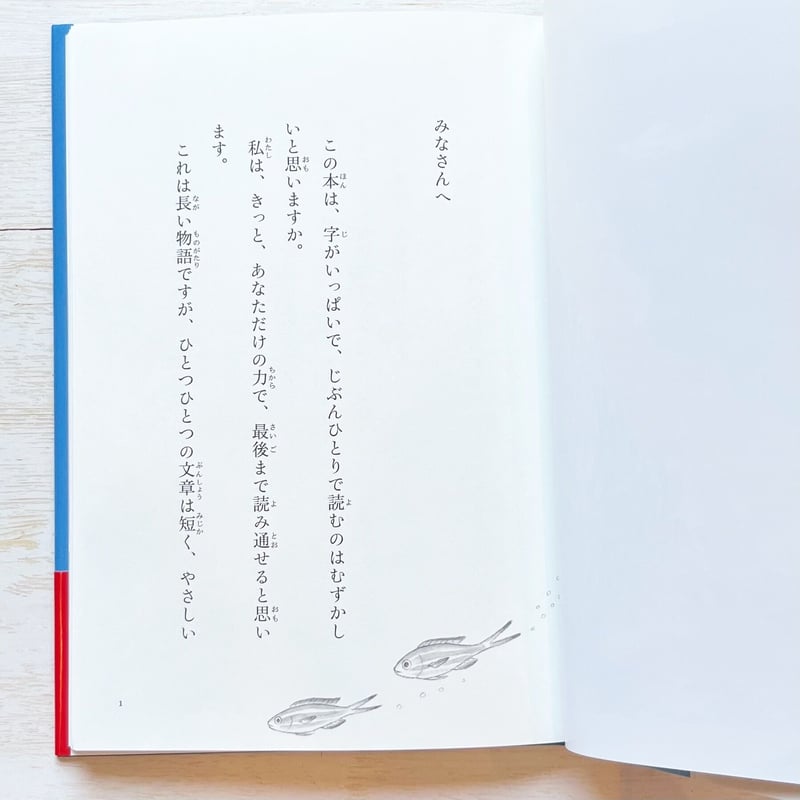 みなさんへ
この本は、字がいっぱいで、じぶんひとりで読むのはむずかし
いと思いますか。
私は、きっと、あなただけの力で、最後まで読み通せると思い
ます。
これは長い物語ですが、ひとつひとつの文章は短く、やさしい
1